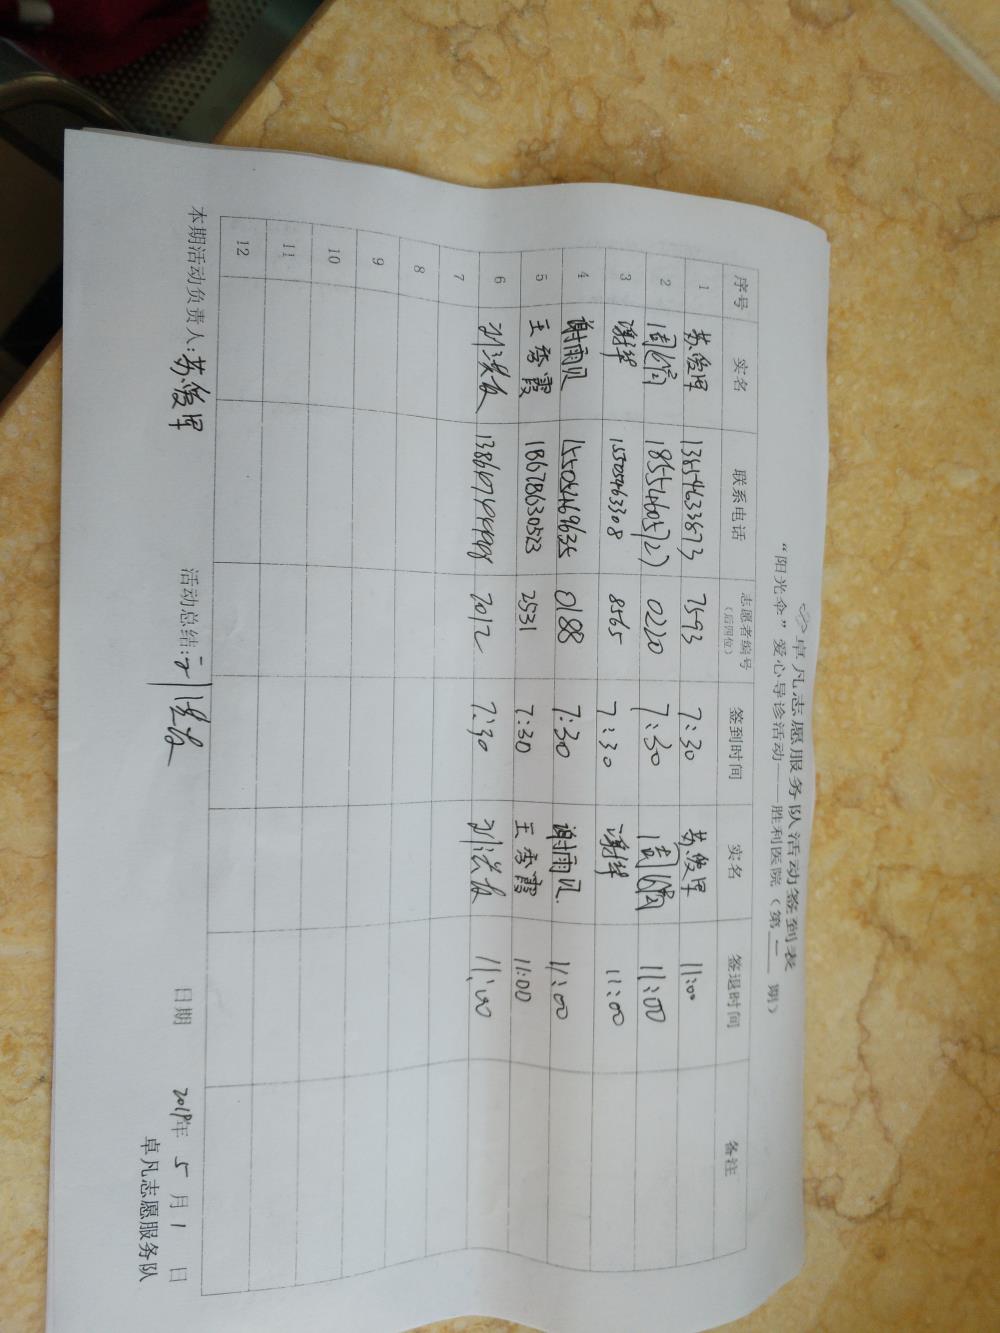 卓凡志愿服务队活动签到表
“阳光伞”爱心导诊活动——胜利医院（第二期）
序号 实名 联系电话 志愿者编号（后四位） 签到时间 实名 签退时间 备注
1 苏俊厚 13654633873 7593 7:30 苏俊厚 11:00
2 0220 7:30 11:00
3 谢华 15505463308 8565 7:30 谢华 11:00
4 谢雨贝 15505469635 0188 7:30 谢雨贝 11:00
5 王秀霞 18678630523 2531 7:30 王秀霞 11:00
6 2012 7:30 11:00
7
8
9
10
11
12
本期活动负责人:苏俊厚 活动总结: 日期 2019年5月1日
卓凡志愿服务队